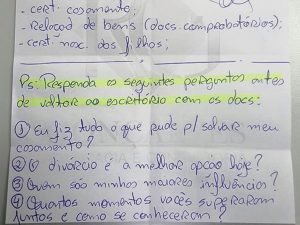 - cert. casamento;
- Relação de bens (docs. comprobatórios);
- cert. nasc. dos filhos;
Ps: Responda as seguintes perguntas antes
de voltar ao escritório com os docs:
① Eu fiz tudo o que pude p/ salvar meu
casamento?
② O divórcio é a melhor opção hoje?
③ Quem são minhas maiores influências?
④ Quantos momentos vocês superaram
juntos e como se conheceram?